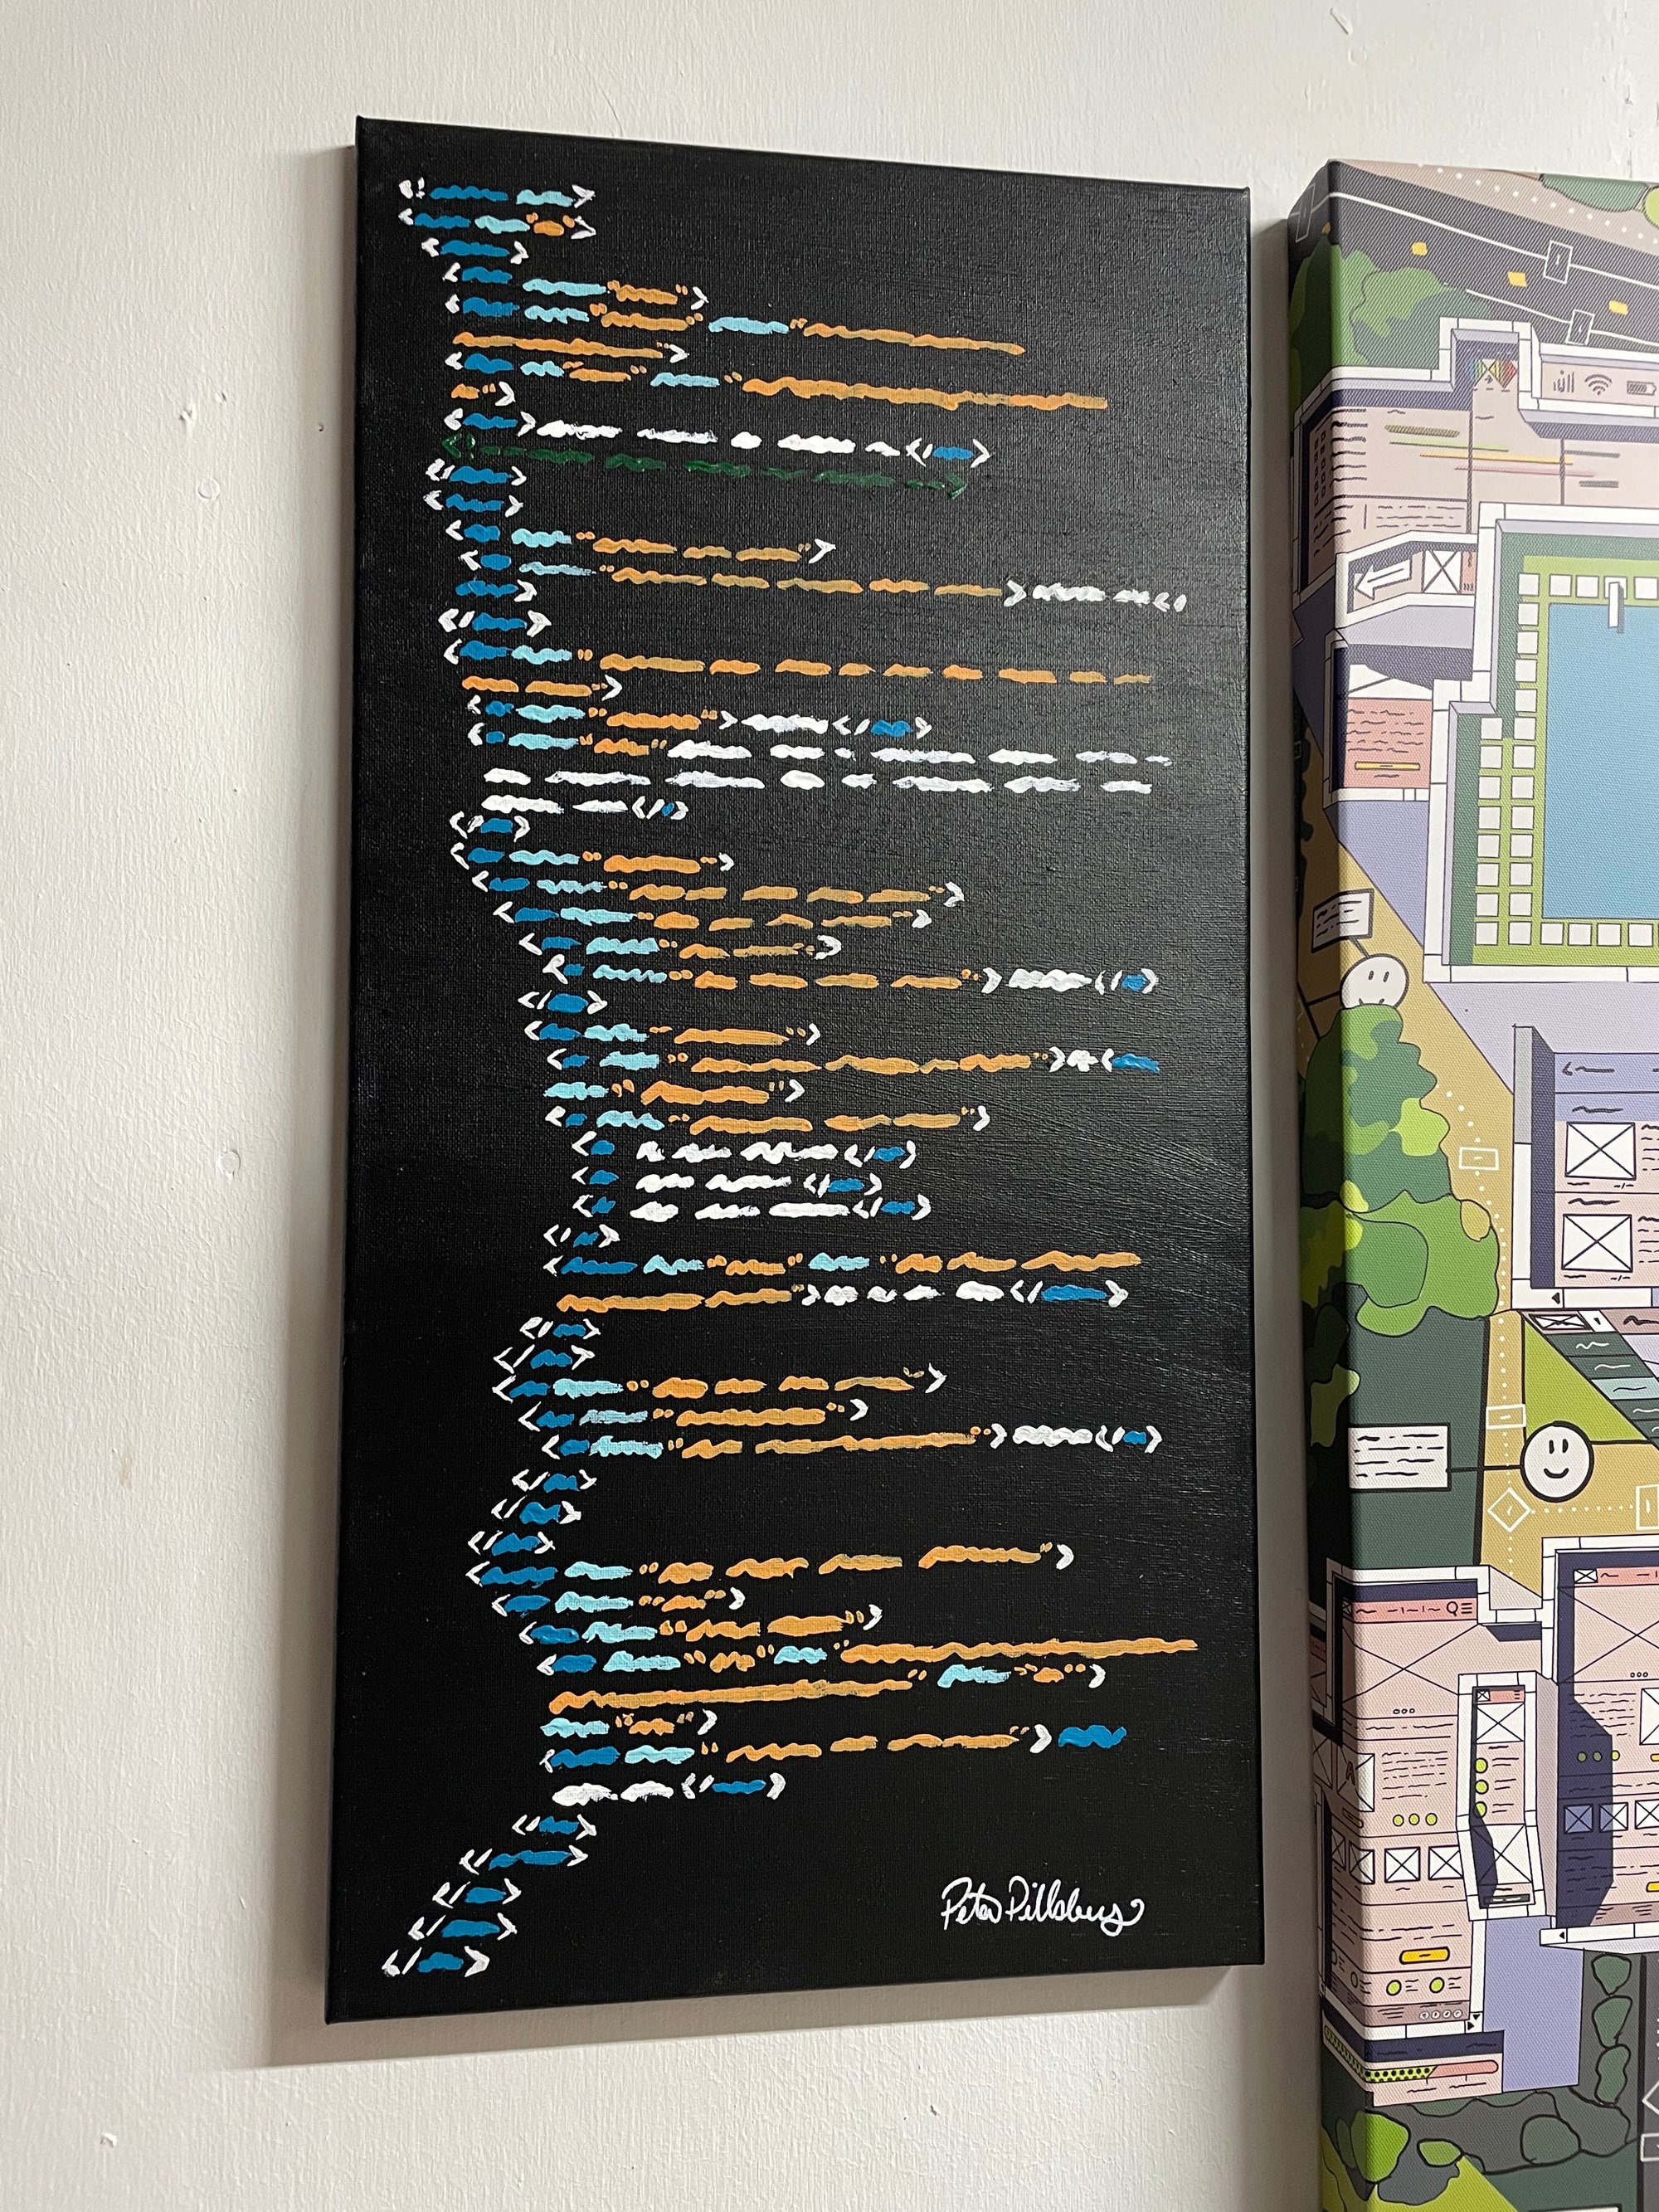 Peter Pillsbury